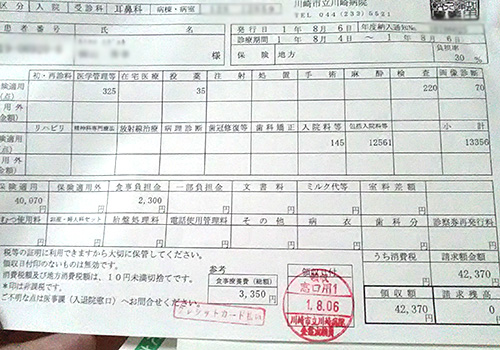 区分 入院 受診科 耳鼻科 病棟・病室
川崎市立川崎病院
TEL 044(233)5521
患者番号
様
発行日 1年 8月 6日 年度納入通知No.
診療期間 1年 8月 4日 ～ 1年 8月 6日
保険 地方 負担率 30 %
初・再診料 医学管理等 在宅医療 投薬 注射 処置 手術 麻酔 検査 画像診断
保険適用(点) 325 35 220 70
適用外(金額)
リハビリ 精神科専門療法 放射線治療 病理診断 歯冠修復等 歯科矯正 入院料等 包括入院料等 小計
保険適用(点) 145 12561 13356
適用外(金額)
保険適用 保険適用外 食事負担金 一部負担金 文書料 ミルク代等 室料差額
40,070円 円 2,300円 円 円 円 円
おむつ使用料 お産・婦人科セット 胎盤処理料 電話使用管理料 その他 病衣 歯科分 診察券再発行料
円 円 円 円 円 円 円 円
税等の証明に利用できますから大切に保管してください。
領収日付印のないものは無効です。
消費税額及び地方消費税額は、10円未満切捨てです。
*印は非課税です。
ご不明な点は医事課(入退院窓口)へお問合せください。
参考
食事療養費(総額)
3,350円
クレジットカード払い
領収日付
領収
窓口用1
1.8.06
川崎市立川崎病院
うち消費税 請求額金額
円 42,370円
領収額 請求残高
42,370円 0円